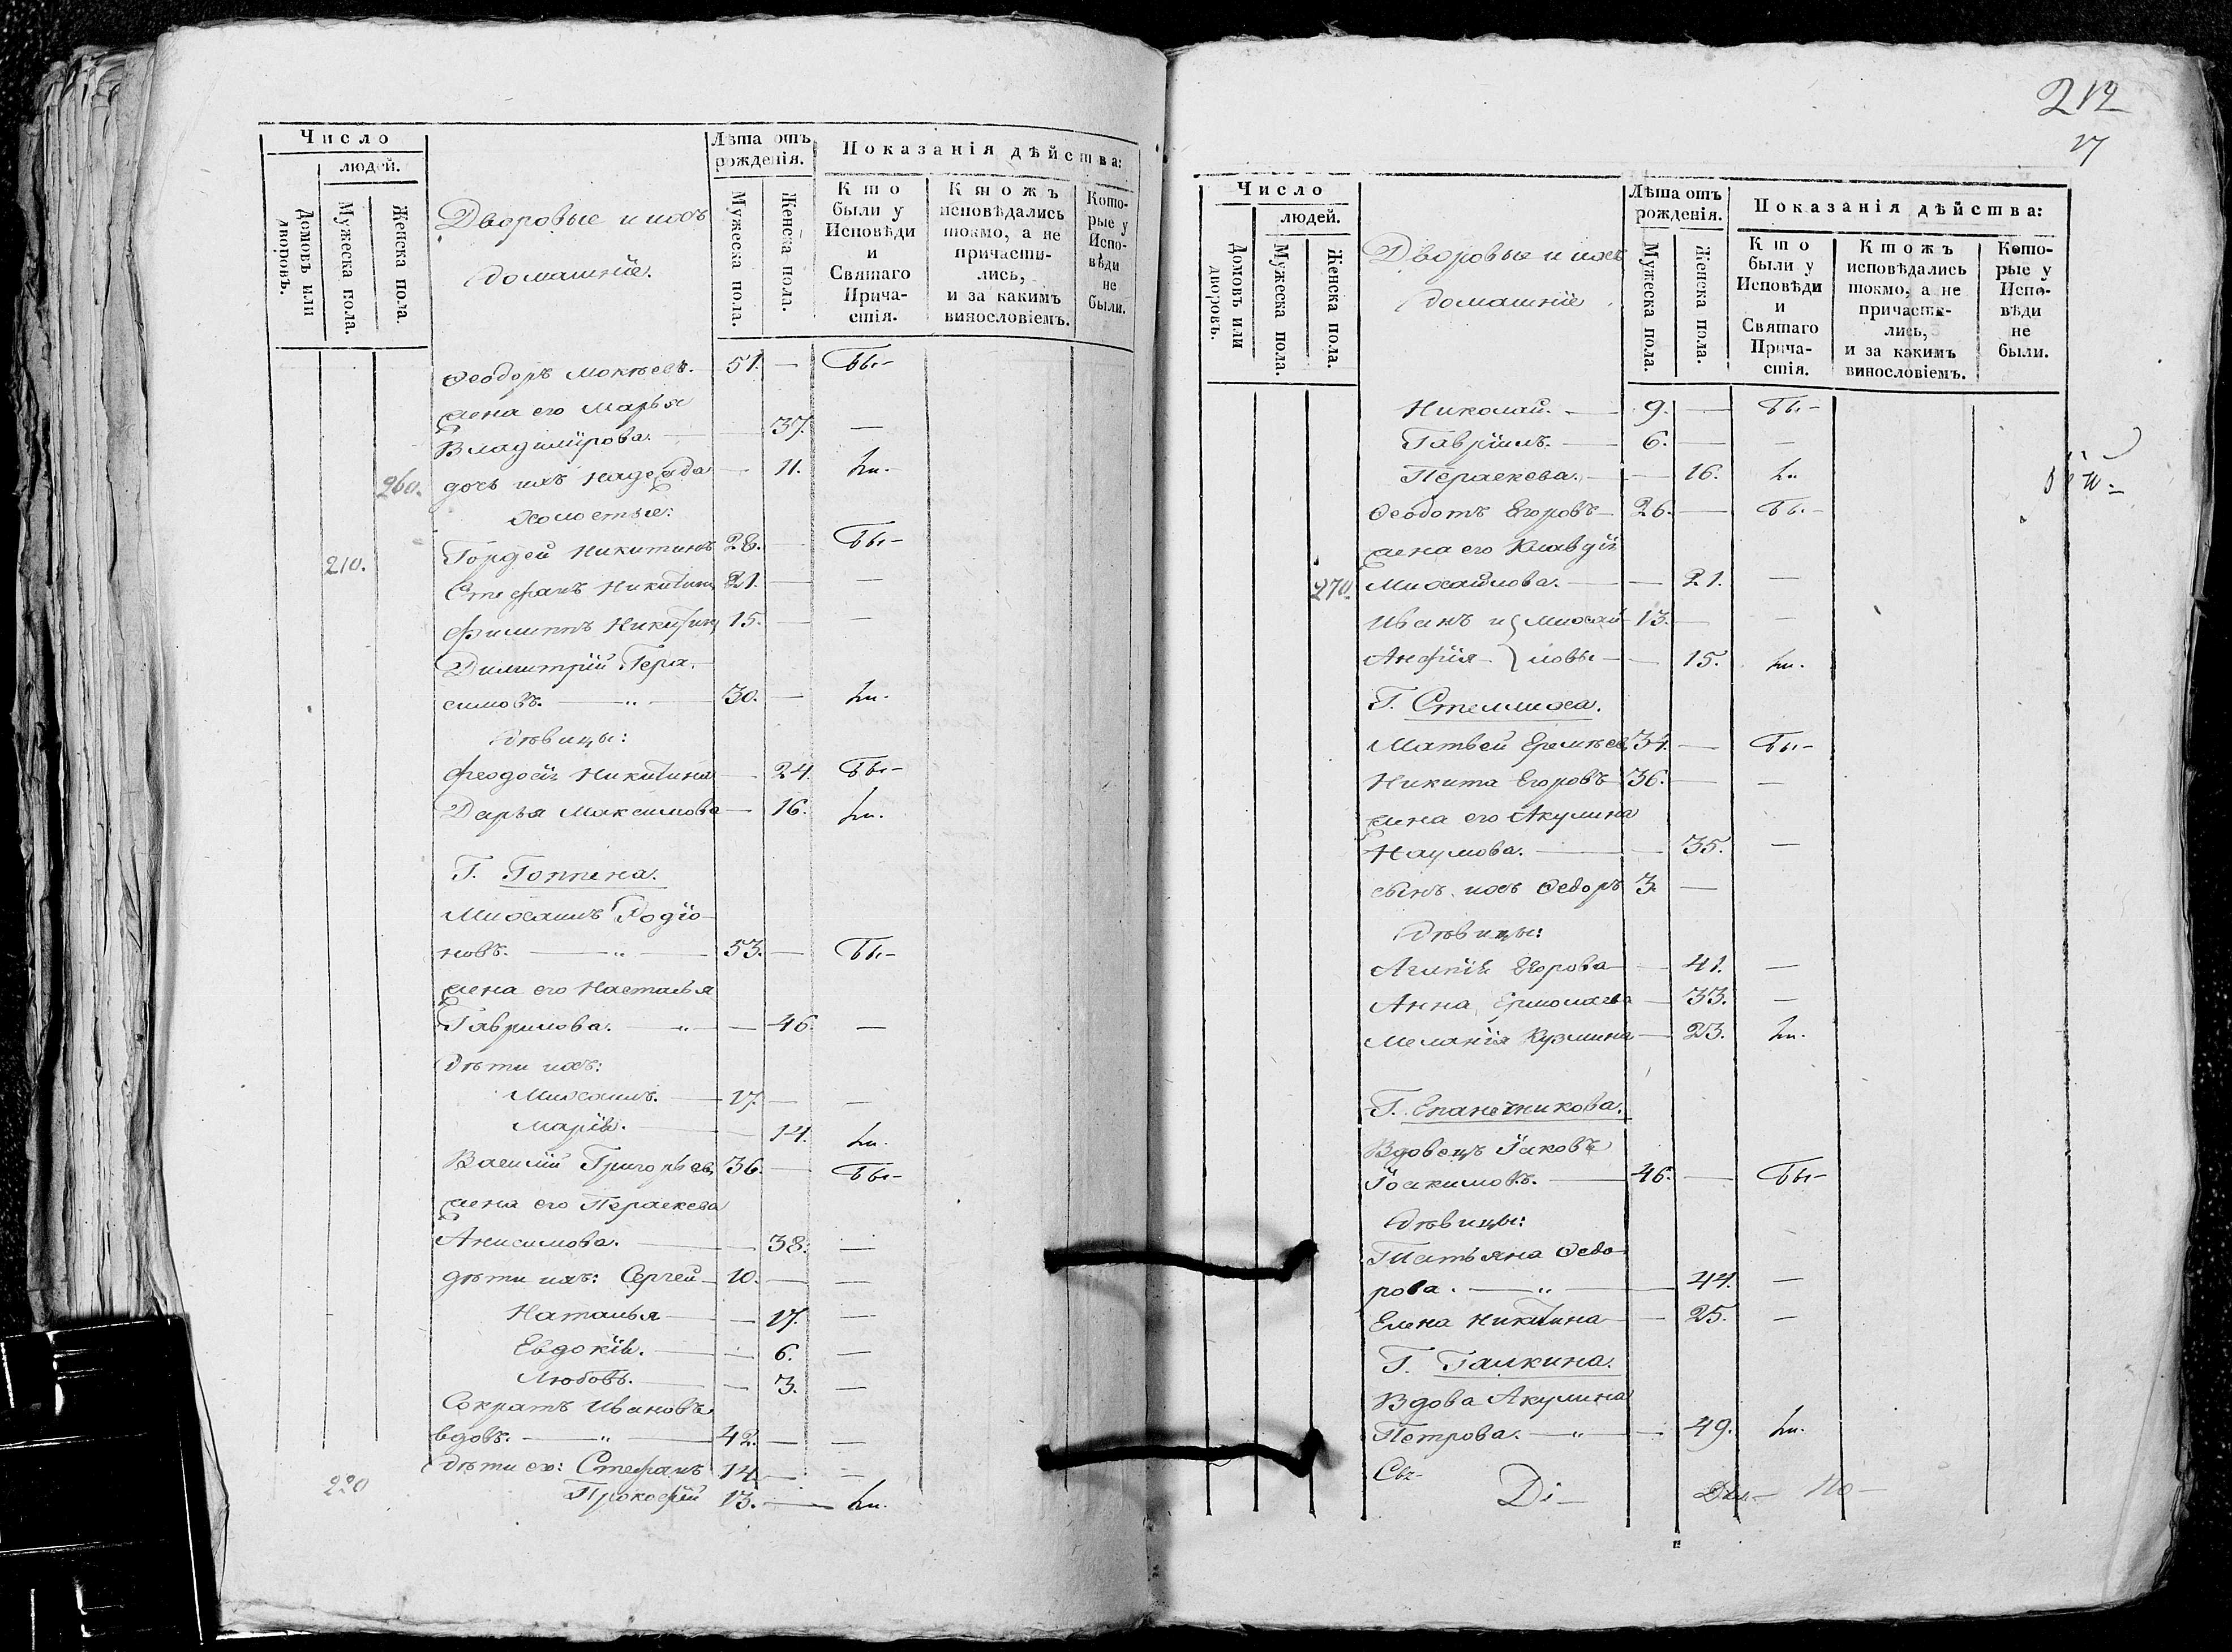 Число
людей.
Домовъ или дворовъ.
Мужеска пола.
Женска пола.
Дворовые и ихъ
домашніе.
Лѣта отъ
рожденія.
Мужеска пола.
Женска пола.
Показанія дѣйства:
Кто
были у
Исповѣди
и
Святаго
Прича-
стія.
Ктожъ
исповѣдались
токмо, а не
причасти-
лись,
и за какимъ
винословіемъ.
Кото-
рые у
Испо-
вѣди
не
были.
Ѳеодоръ Мокѣевъ. 51. — Бы-
жена его Марья
Владимірова. — 37. —
260. дочь ихъ Надежда — 11.
Холостые:
210. Гордей Никитинъ 28. — Бы-
Стефанъ Никитинъ 21. — —
Филиппъ Никитинъ 15. — —
Димитрій Гера-
симовъ. — „ — 30. —
Дѣвицы:
Феодосія Никитина — 24. Бы-
Дарья Максимова — 16.
Г. Гоппена.
Михаилъ Родіо-
новъ. — „ — 53. — Бы-
жена его Настасья
Гаврилова. — „ — — 46. —
Дѣти ихъ:
Михаилъ. — 17. — —
Марія. — 14.
Василій Григорьевъ 36. — Бы-
жена его Параскева
Анисимова. — — 38. —
дѣти ихъ: Сергей — 10. — —
Наталья — — 17. —
Евдокія. — — 6. —
Любовь. — — 3. —
Сократъ Ивановъ
вдовъ. — „ — 42. — —
дѣти ег: Стефанъ 14. — —
220 Прокофій 13. —
212
17
Число
людей.
Домовъ или дворовъ.
Мужеска пола.
Женска пола.
Дворовые и ихъ
домашніе
Лѣта отъ
рожденія.
Мужеска пола.
Женска пола.
Показанія дѣйства:
Кто
были у
Исповѣди
и
Святаго
Прича-
стія.
Ктожъ
исповѣдались
токмо, а не
причасти-
лись,
и за какимъ
винословіемъ.
Кото-
рые у
Испо-
вѣди
не
были.
Николай. — 9. — Бы-
Гавріилъ. — 6. — —
Параскева. — — 16.
Ѳеодотъ Егоровъ — 26. — Бы-
жена его Клавдія
270. Михайлова. — — 21. —
Иванъ и } Михай- 13. — —
Анфія. } ловы — — 15.
Г.
Матвей Еремѣевъ 34. — Бы-
Никита Егоровъ 36. — —
жена его Акулина
Наумова. — — 35. —
сынъ ихъ Ѳедоръ 3. —
Дѣвицы:
Агапія Егорова — 41. —
Анна Ермолаева — 33. —
Меланія Кузмина — 23.
Г. Епанечникова.
Вдовецъ Іаковъ
Іоакимовъ. — 46. — Бы-
Дѣвицы:
Татьяна Ѳедо-
рова. — „ — 44. —
Елена Никитина — — 25. —
Г. Галкина.
Вдова Акулина
Петрова. — „ — — 49.